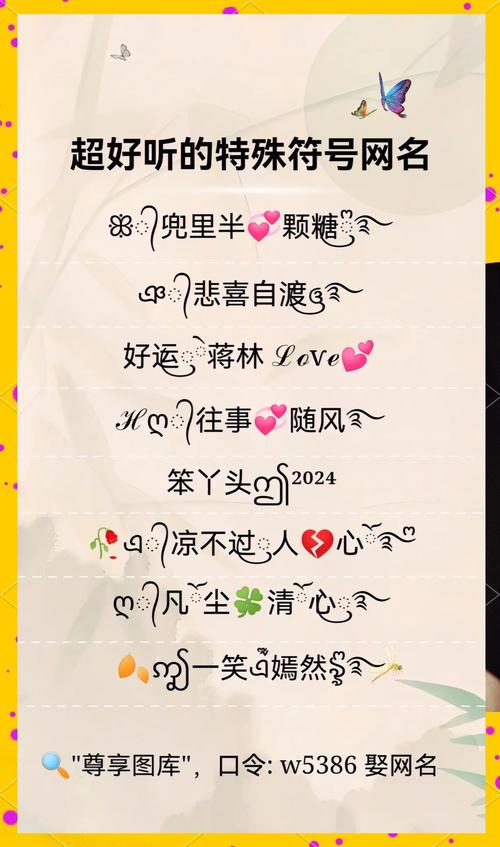 超好听的特殊符号网名
ꕥ᭄兜里半💞颗糖ღ࿐
ঞ᭄悲喜自渡ঔ࿐
好运ৡ蒋林 ℒℴѵℯ💕
ℋღ᭄往事💞随风࿐
笨丫头ஐ²⁰²⁴
🥀එ᭄凉不过ৢ人💔心࿐ღ
ღ᭄凡ོ尘🍀清ོ心ৢ࿐
🍂ൢ一笑ཻ嫣然ༀ࿐
🔍"尊享图库"，口令: w5386 娶网名